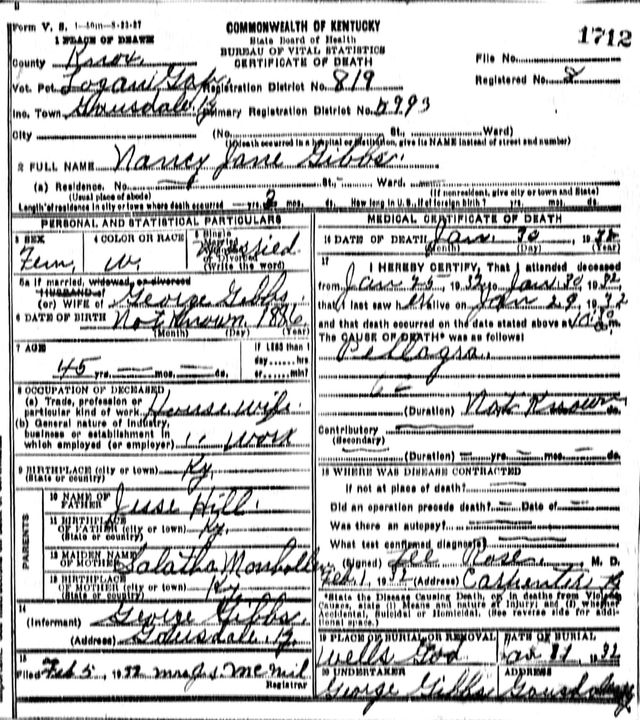 Form V. S. 1-50m-8-23-27
COMMONWEALTH OF KENTUCKY
State Board of Health
BUREAU OF VITAL STATISTICS
CERTIFICATE OF DEATH
1712
1 PLACE OF DEATH
County Knox
File No.
Vot. Pct. Logan Gap Registration District No. 819
Registered No. 8
Inc. Town Primary Registration District No.
City (No. St., Ward)
(If death occurred in a hospital or institution, give its NAME instead of street and number)
2 FULL NAME Nancy Jane Gibbs.
(a) Residence. No. St., Ward.
(Usual place of abode) (If nonresident, give city or town and State)
Length of residence in city or town where death occurred yrs. mos. ds. How long in U. S., if of foreign birth? yrs. mos. ds.
PERSONAL AND STATISTICAL PARTICULARS
3 SEX
Fem.
4 COLOR OR RACE
W.
5 Single
Married
(Write the word)
5a If married, widowed, or divorced
HUSBAND of
(or) WIFE of George Gibbs.
6 DATE OF BIRTH Not Known 1886
(Month) (Day) (Year)
7 AGE
45 yrs. mos. ds.
If LESS than 1
day hrs.
or min?
8 OCCUPATION OF DECEASED
(a) Trade, profession or
particular kind of work House wife
(b) General nature of industry,
business or establishment in
which employed (or employer) " work
9 BIRTHPLACE (city or town) Ky.
(State or country)
PARENTS
10 NAME OF
FATHER Hill.
11 BIRTHPLACE
OF FATHER (city or town) Ky.
(State or country)
12 MAIDEN NAME
OF MOTHER
13 BIRTHPLACE
OF MOTHER (city or town) Ky
(State or country)
14
(Informant) George Gibbs.
(Address)
15
Filed Feb 5, 1932
Registrar
MEDICAL CERTIFICATE OF DEATH
16 DATE OF DEATH Jan. 30, 1932
(Month) (Day) (Year)
17
I HEREBY CERTIFY, That I attended deceased
from Jan 25, 1932 to Jan 30, 1932,
that I last saw alive on Jan 29, 1932
and that death occurred on the date stated above at m.
The CAUSE OF DEATH* was as follows:
Pellagra.
62
(Duration) Not Known ds.
Contributory
(Secondary)
(Duration) yrs. mos. ds.
18 WHERE WAS DISEASE CONTRACTED
If not at place of death?
Did an operation precede death? Date of
Was there an autopsy?
What test confirmed diagnosis?
(Signed) Lee Rose, M. D.
Feb. 1, 1932 (Address) Carpenter Ky
*State the Disease Causing Death, or, in deaths from Violent
Causes, state (1) Means and nature of Injury; and (2) whether
Accidental, Suicidal or Homicidal. (See reverse side for addi-
tional space.)
19 PLACE OF BURIAL OR REMOVAL
Wells
DATE OF BURIAL
Jan 31, 1932
20 UNDERTAKER
George Gibbs
ADDRESS